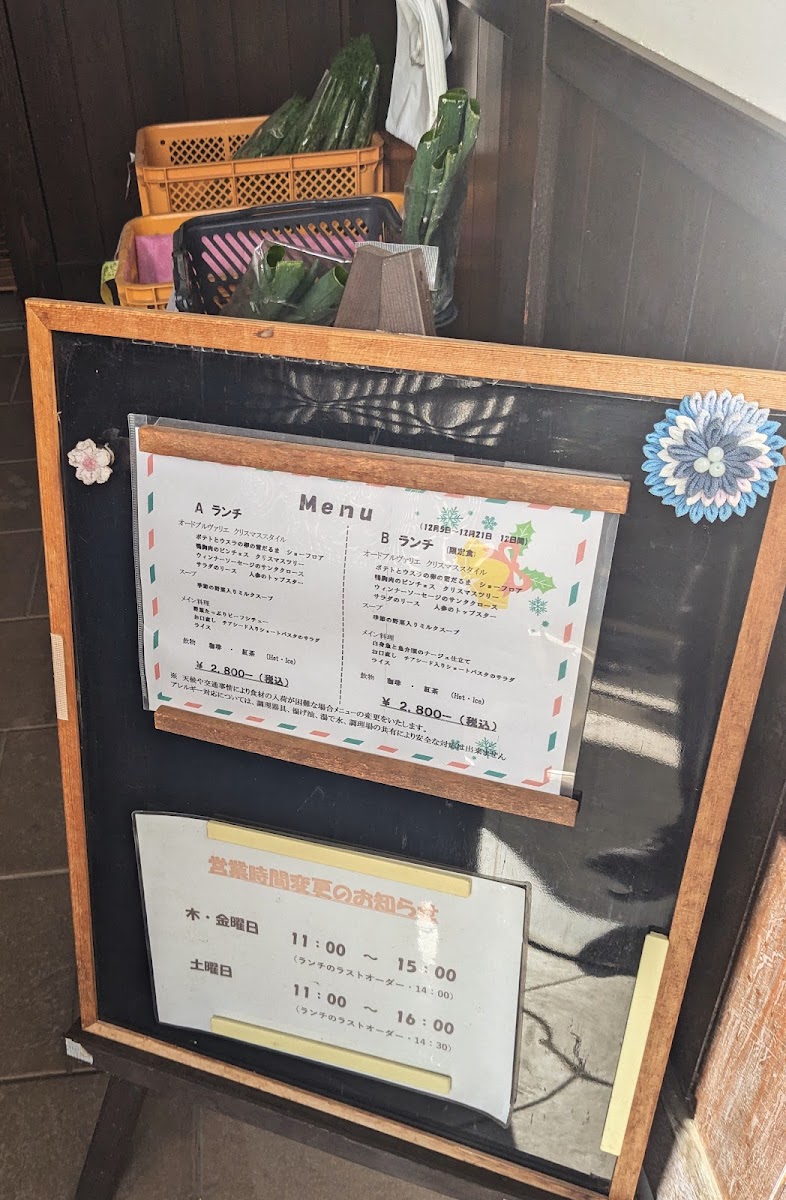 Menu
(12月5日~12月21日　12日間)
A ランチ
オードブルヴァリエ　クリスマススタイル
ポテトとウズラの卵の雪だるま　ショーフロア
鴨胸肉のピンチョス　クリスマスツリー
ウィンナーソーセージのサンタクロース
サラダのリース　人参のトップスター
スープ
季節の野菜入りミルクスープ
メイン料理
野菜たっぷりビーフシチュー
お口直し　チアシード入りショートパスタのサラダ
ライス
飲物　珈琲　・　紅茶　(Hot・Ice)
￥ 2,800-（税込）
B ランチ　(限定食)
オードブルヴァリエ　クリスマススタイル
ポテトとウズラの卵の雪だるま　ショーフロア
鴨胸肉のピンチョス　クリスマスツリー
ウィンナーソーセージのサンタクロース
サラダのリース　人参のトップスター
スープ
季節の野菜入りミルクスープ
メイン料理
白身魚と魚介類のナージュ仕立て
お口直し　チアシード入りショートパスタのサラダ
ライス
飲物　珈琲　・　紅茶　(Hot・Ice)
￥ 2,800-（税込）
※ 天候や交通事情により食材の入荷が困難な場合メニューの変更をいたします。
アレルギー対応については、調理器具、揚げ油、湯で水、調理場の共有により安全な対応は出来ません
営業時間変更のお知らせ
木・金曜日
11：00　～　15：00
（ランチのラストオーダー・14：00）
土曜日
11：00　～　16：00
（ランチのラストオーダー・14：30）